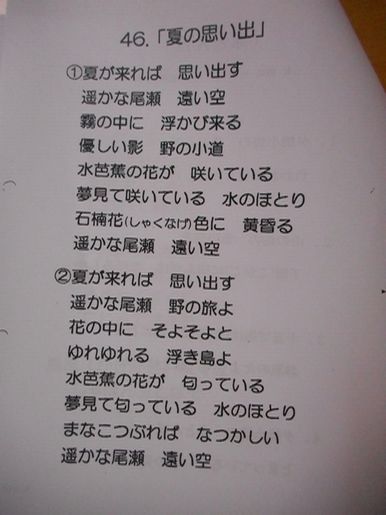 46.「夏の思い出」
①夏が来れば　思い出す
遥かな尾瀬　遠い空
霧の中に　浮かび来る
優しい影　野の小道
水芭蕉の花が　咲いている
夢見て咲いている　水のほとり
石楠花(しゃくなげ)色に　黄昏る
遥かな尾瀬　遠い空
②夏が来れば　思い出す
遥かな尾瀬　野の旅よ
花の中に　そよそよと
ゆれゆれる　浮き島よ
水芭蕉の花が　匂っている
夢見て匂っている　水のほとり
まなこつぶれば　なつかしい
遥かな尾瀬　遠い空